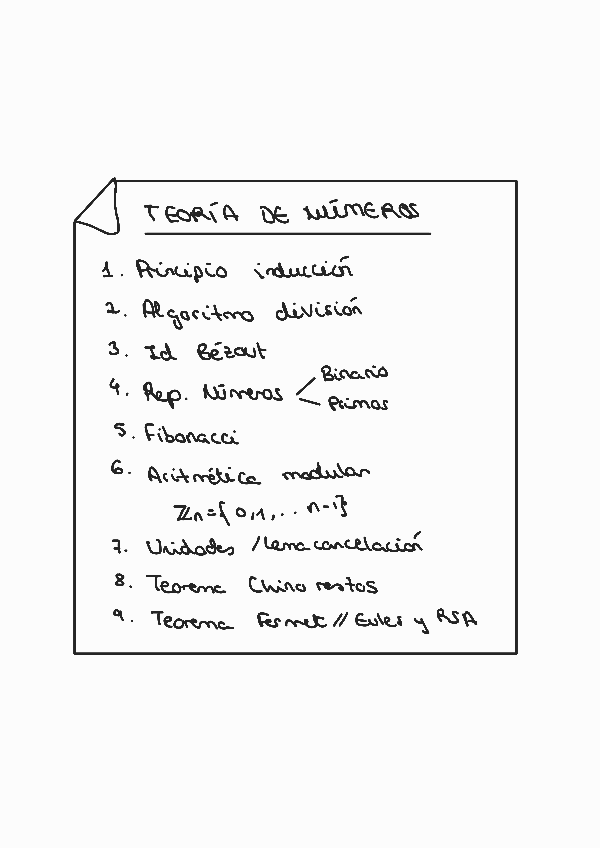 TEORÍA DE NÚMEROS
1. Principio inducción
2. Algoritmo división
3. Id Bézout
4. Rep. Números
Binario
Primos
5. Fibonacci
6. Aritmética modular
ℤn={0,1,.. n-1}
7. Unidades / lema cancelación
8. Teorema Chino restos
9. Teorema Fermat // Euler y RSA